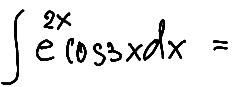 ∫ e^{2x} cos3x dx =